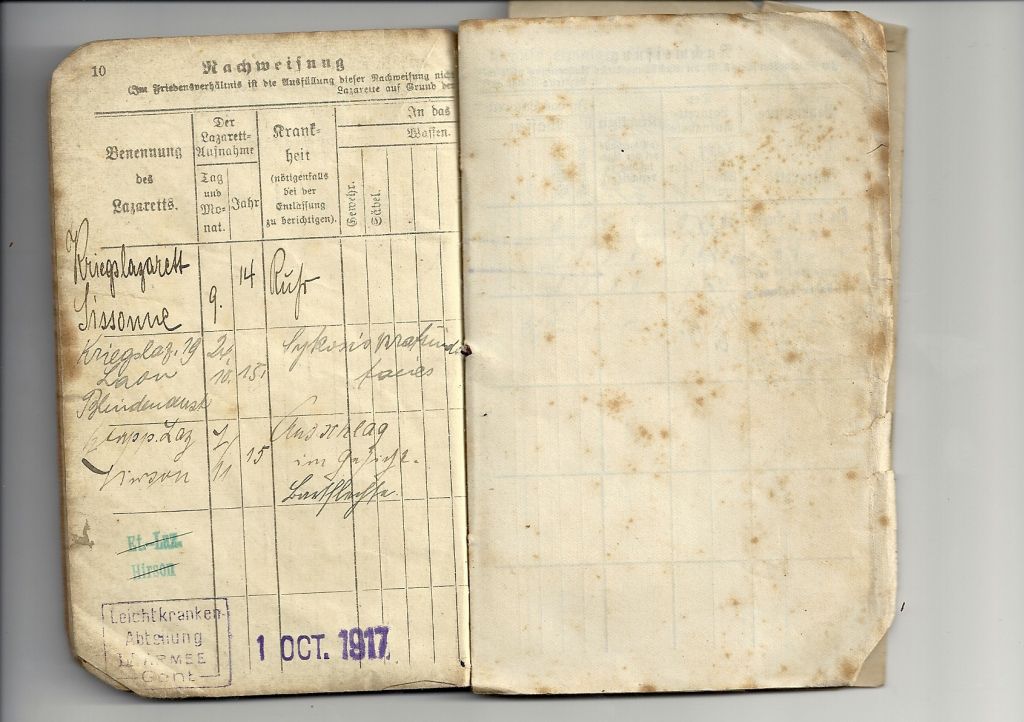 10
Nachweisung
(Im Friedensverhältnis ist die Ausfüllung dieser Nachweisung
Lazarette auf Grund
Benennung
des
Lazaretts.
Der
Lazarett-
Aufnahme
Tag
und
Mo-
nat.
Jahr
Krank-
heit
(nötigenfalls
bei der
Entlassung
zu berichtigen).
In das
Waffen.
Gewehr.
Säbel.
Kriegslazarett
Sissonne
9.
14
Ruhr
Kriegslaz. 19
Laon
10.
15.
Etapp. Laz
Hirson
11
15
Ausschlag
im Gesicht.
Bartflechte
Et.-Laz.
Hirson
Leichtkranken-
Abteilung
ARMEE
Gent
1 OCT. 1917